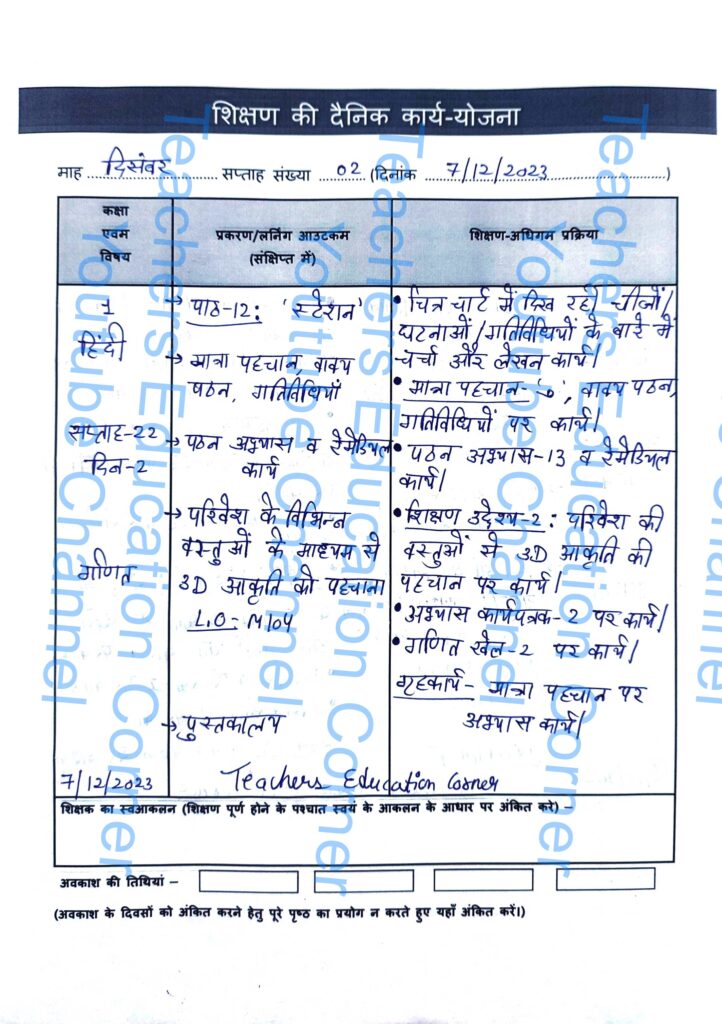 शिक्षण की दैनिक कार्य-योजना
माह दिसंबर सप्ताह संख्या 02 (दिनांक 7/12/2023)
कक्षा
एवम
विषय
प्रकरण/लर्निंग आउटकम
(संक्षिप्त में)
शिक्षण-अधिगम प्रक्रिया
1
हिंदी
सप्ताह-22
दिन-2
→ पाठ-12: 'स्टेशन'
→ मात्रा पहचान, वाक्य
पठन, गतिविधियाँ
→ पठन अभ्यास व रेमेडियल
कार्य
• चित्र चार्ट में दिख रही चीजों/
घटनाओं/गतिविधियों के बारे में
चर्चा और लेखन कार्य।
• मात्रा पहचान- , वाक्य पठन,
गतिविधियों पर कार्य।
• पठन अभ्यास-13 व रेमेडियल
कार्य।
गणित
→ परिवेश के विभिन्न
वस्तुओं के माध्यम से
3D आकृति को पहचाना
L.O - M104
• शिक्षण उद्देश्य-2: परिवेश की
वस्तुओं से 3D आकृति की
पहचान पर कार्य।
• अभ्यास कार्यपत्रक-2 पर कार्य।
• गणित खेल-2 पर कार्य।
→ पुस्तकालय
गृहकार्य- मात्रा पहचान पर
अभ्यास कार्य।
7/12/2023
Teachers Education Corner
शिक्षक का स्वआकलन (शिक्षण पूर्ण होने के पश्चात स्वयं के आकलन के आधार पर अंकित करे) –
अवकाश की तिथियां –
(अवकाश के दिवसों को अंकित करने हेतु पूरे पृष्ठ का प्रयोग न करते हुए यहाँ अंकित करें।)
Teachers Education Corner
Youtube Channel
Teachers Education Corner
Youtube Channel
Teachers Education Corner
Youtube Channel